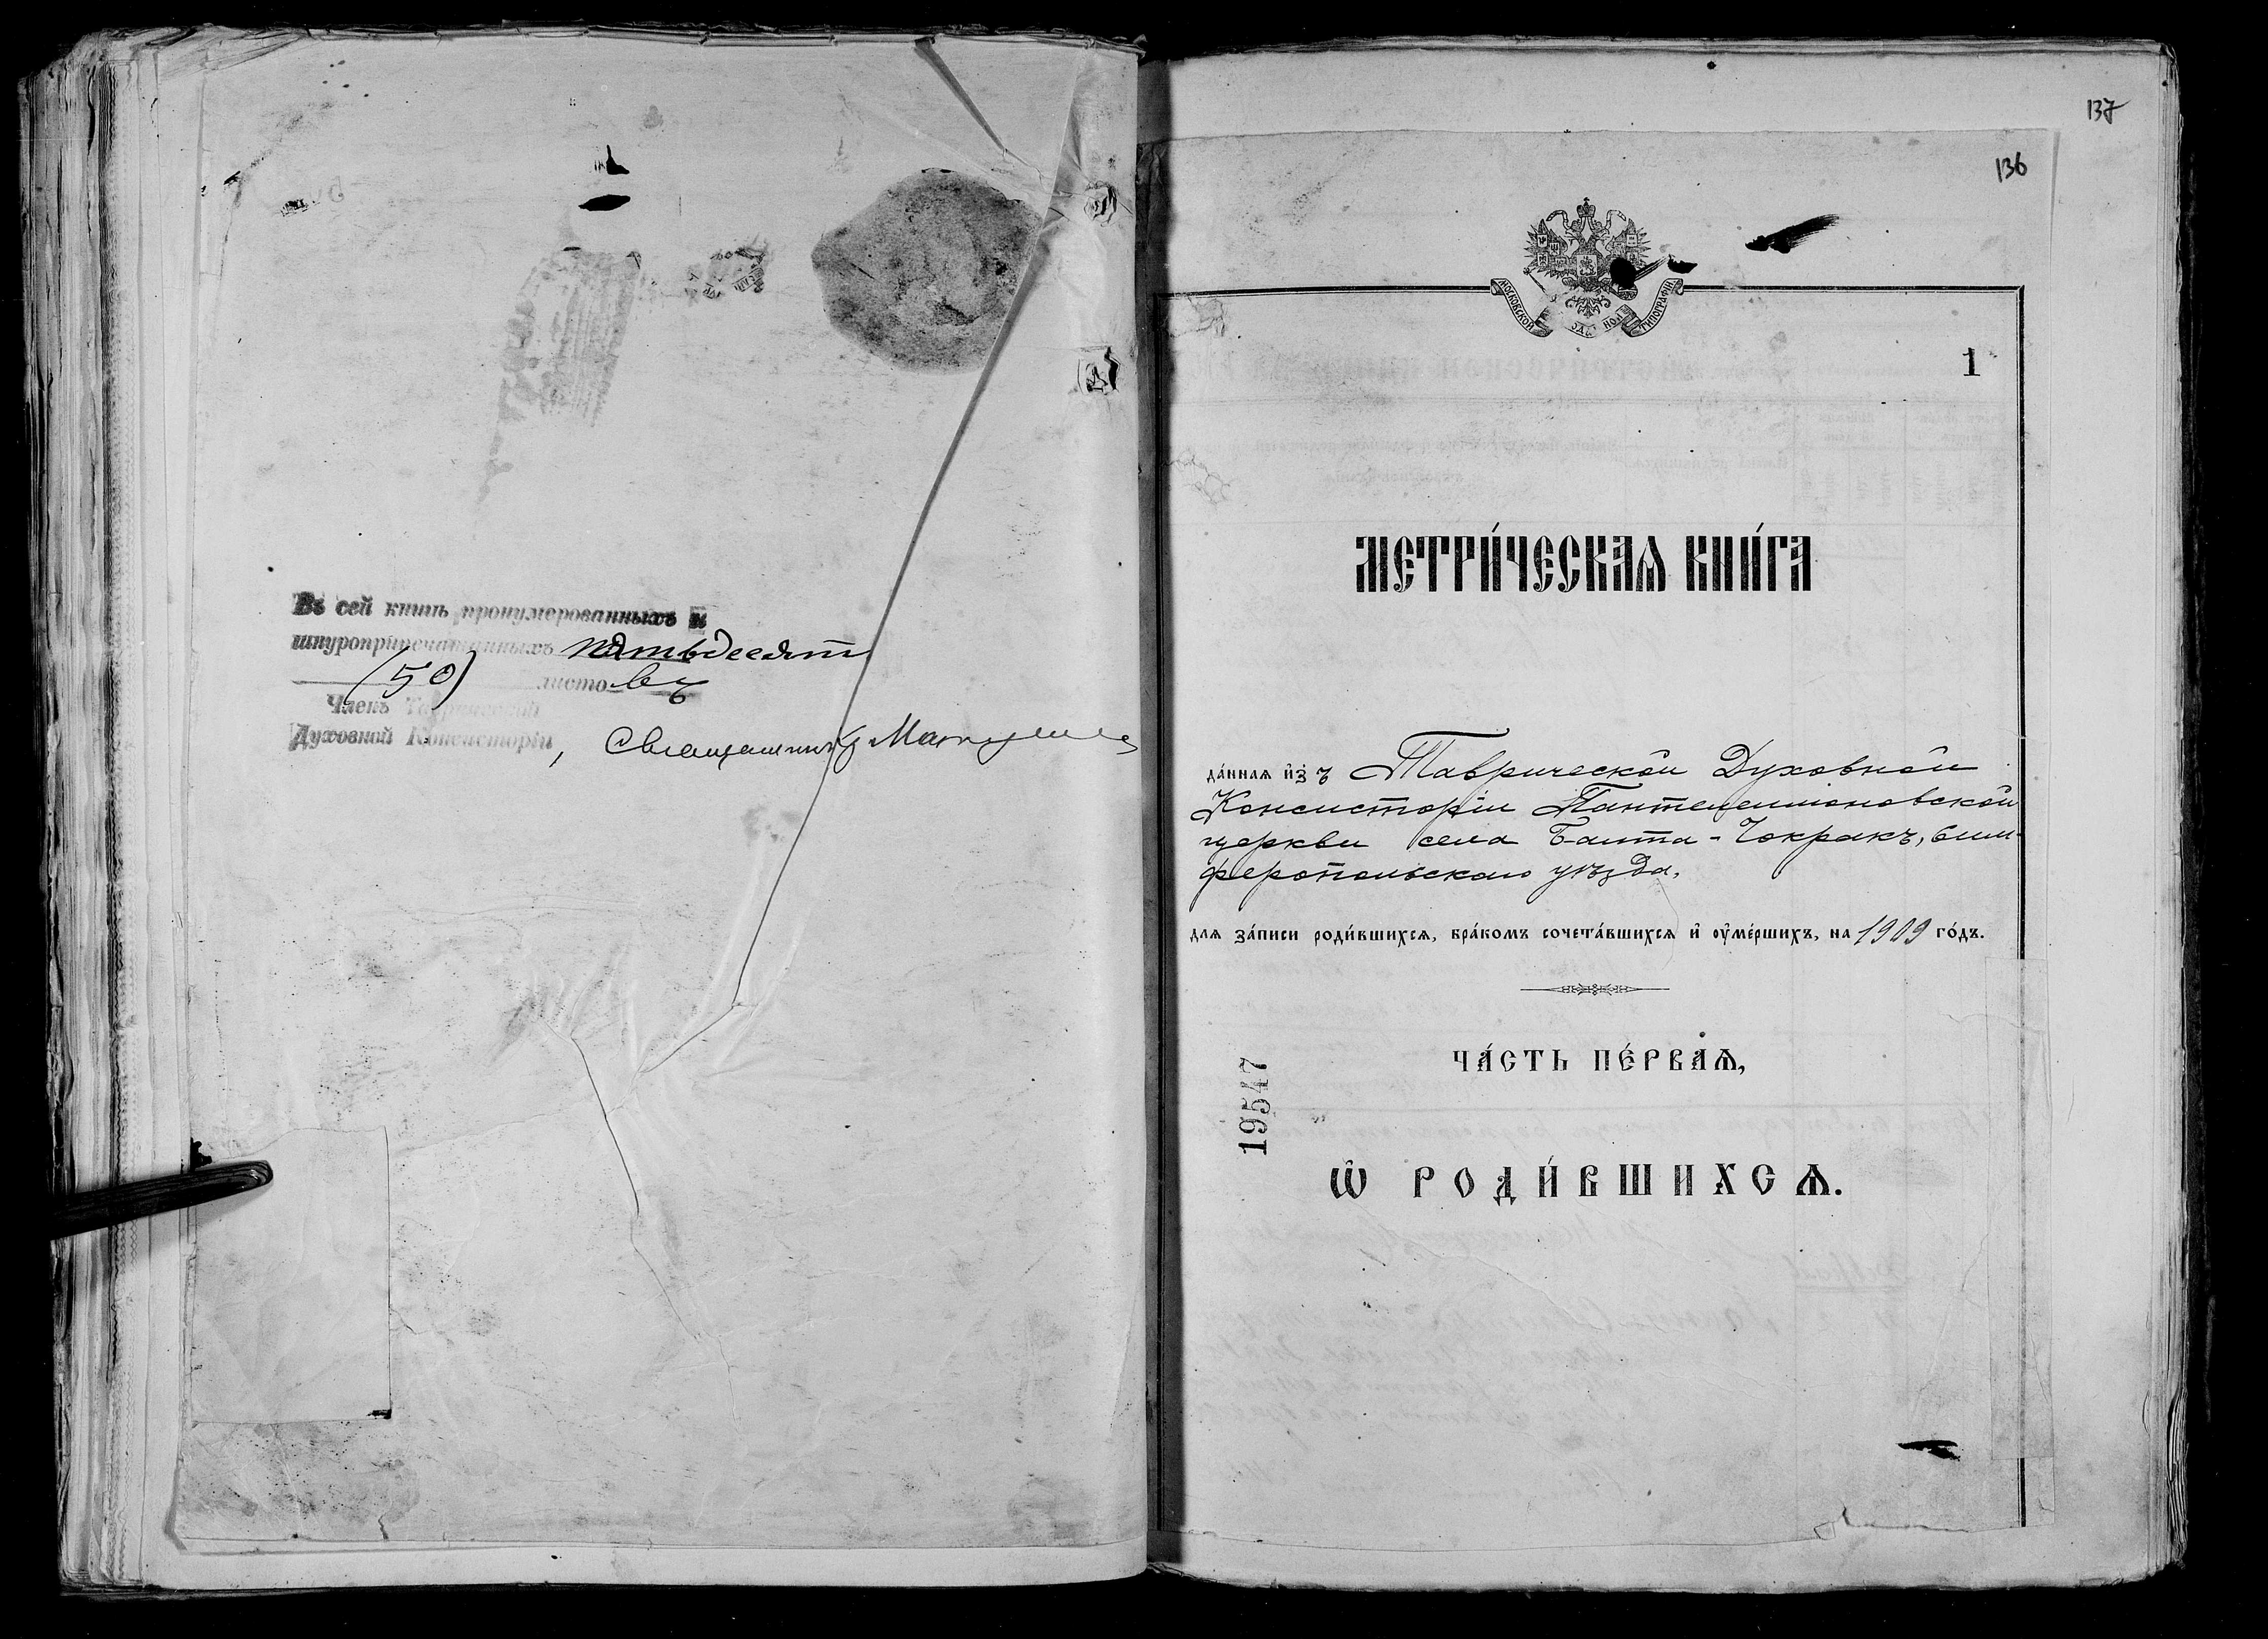 Въ сей книгѣ пронумерованныхъ и
шнуроприпечатанныхъ пятьдесят
(50) листо въ
Членъ Таврической
Духовной Консисторіи, Священникъ
137
136
МОСКОВСКОЙ СѴНОДАЛЬНОЙ ТИПОГРАФІИ
1
МЕТРИ́ЧЕСКАѦ КНИ́ГА
да́ннаѧ и҆зъ Таврической Духовной
Консисторіи Пантелеимоновской
церкви села Бешта-Чокракъ, Сим-
феропольскаго уѣзда.
длѧ за́писи роди́вшихсѧ, бра́комъ сочета́вшихсѧ и҆ ᲂу҆ме́ршихъ, на 1909 го́дъ.
ЧА́СТЬ ПЕ́РВАѦ,
19547
Ѡ҆ РОДИ́ВШИХСѦ.